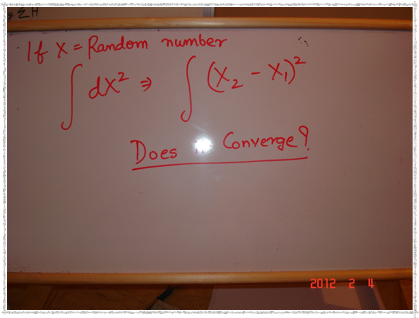 If X = Random number
∫ dX² ⇒ ∫ (X₂ - X₁)²
Does Converge?
2012 2 4